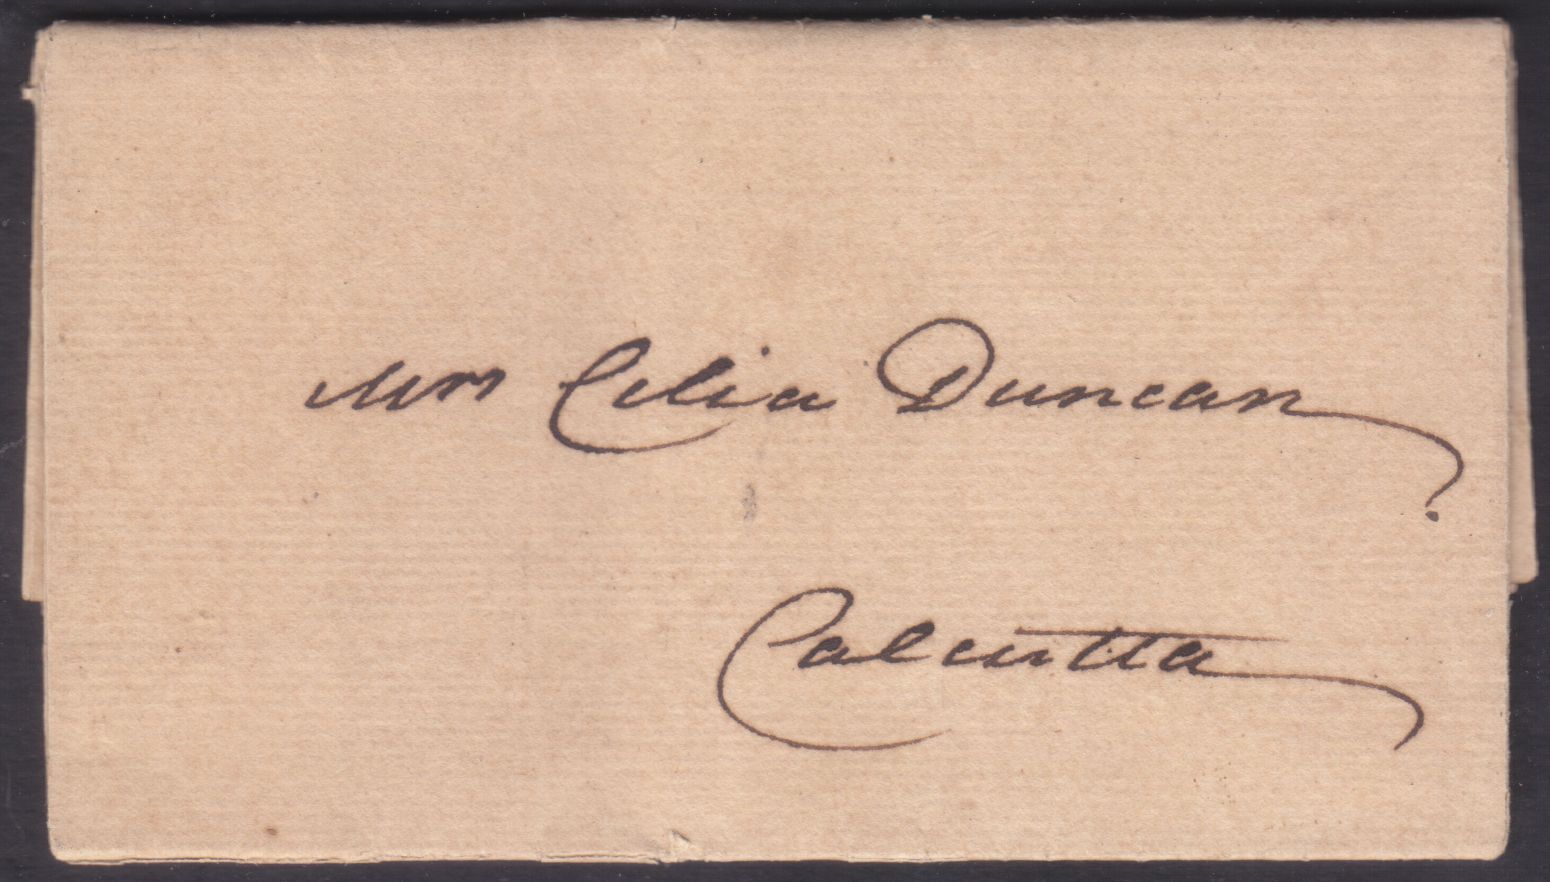 Mrs Celia Duncan
Calcutta